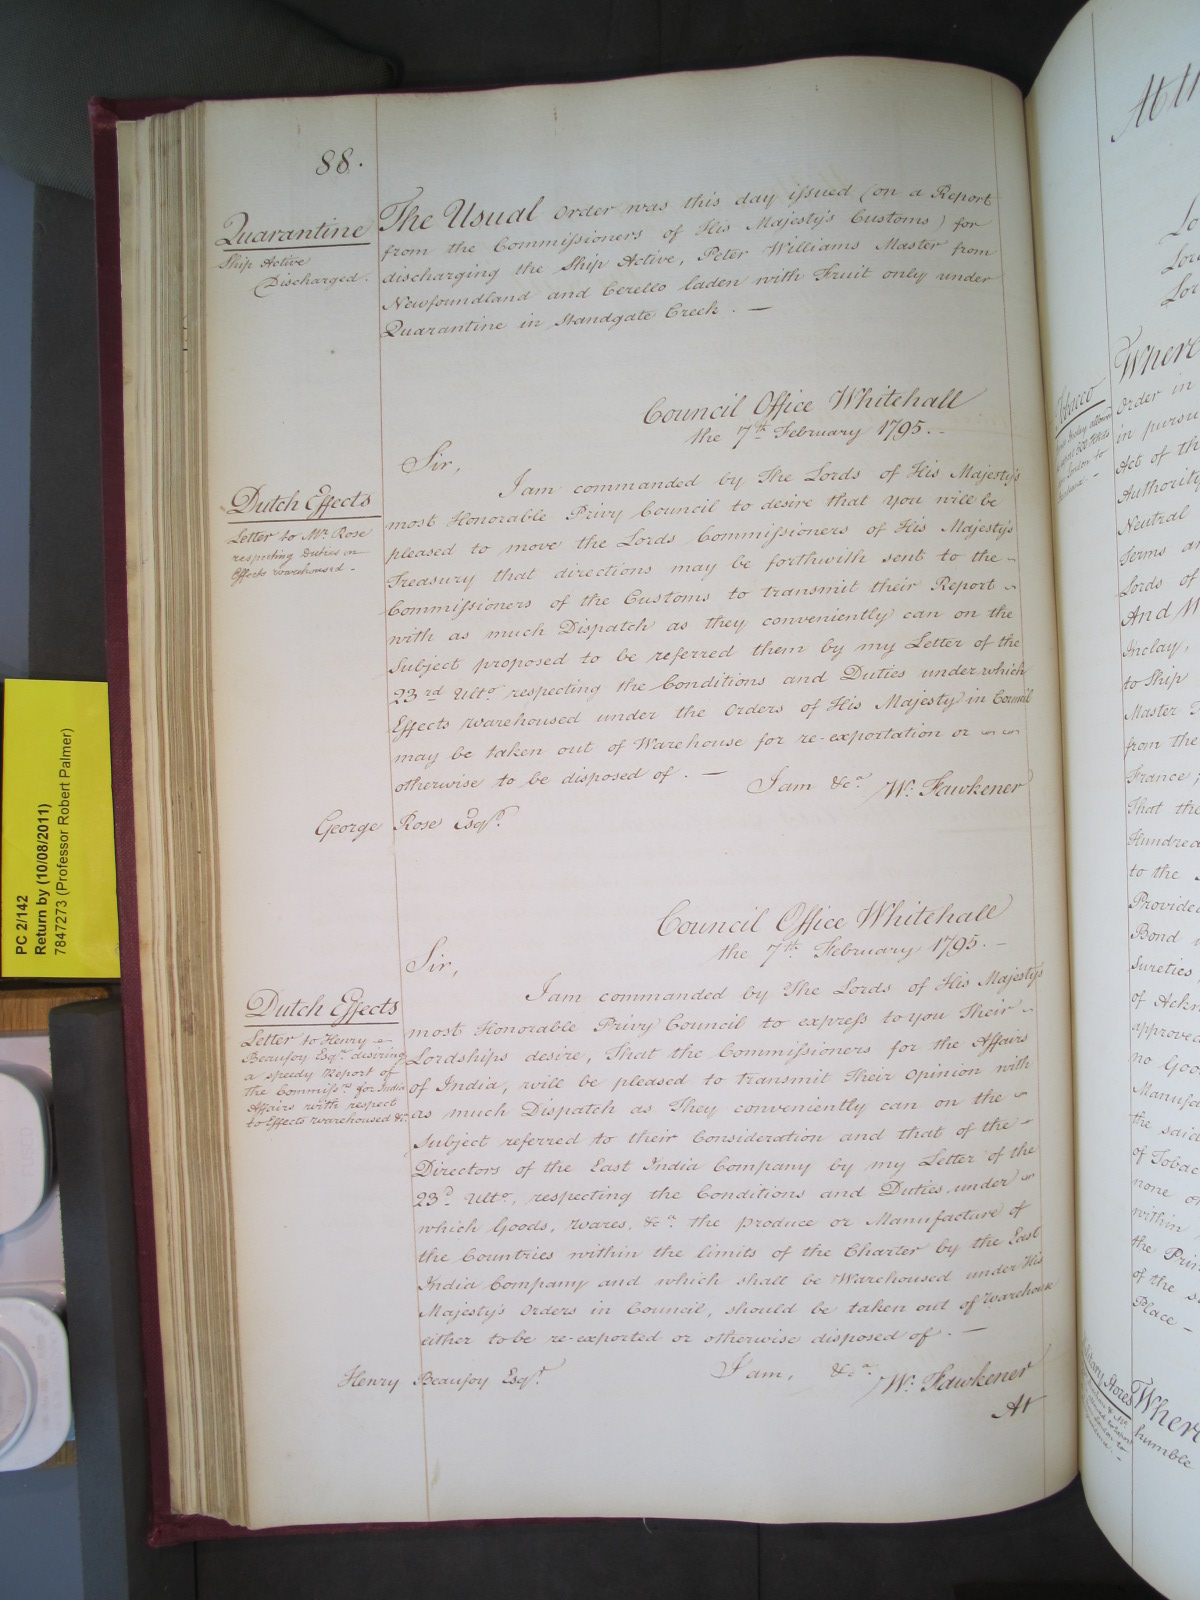 88.
Quarantine
Ship Active
Discharged.
The Usual Order was this day issued (on a Report
from the Commissioners of His Majesty's Customs) for
discharging the Ship Active, Peter Williams Master from
Newfoundland and Cerello laden with Fruit only under
Quarantine in Standgate Creek. —
Council Office Whitehall
the 7th February 1795.
Dutch Effects
Letter to Mr Rose
respecting Duties on
Effects warehoused -
Sir,
I am commanded by The Lords of His Majesty's
most Honorable Privy Council to desire that you will be
pleased to move the Lords Commissioners of His Majesty's
Treasury that directions may be forthwith sent to the
Commissioners of the Customs to transmit their Report
with as much Dispatch as they conveniently can on the
Subject proposed to be referred them by my Letter of the
23rd Ulto respecting the Conditions and Duties under which
Effects warehoused under the Orders of His Majesty in Council
may be taken out of Warehouse for re-exportation or
otherwise to be disposed of. —
I am &ca W. Fawkener
George Rose Esqr.
Council Office Whitehall
the 7th February 1795. -
Dutch Effects
Letter to Henry
Beaufoy Esqr. desiring
a speedy Report of
the Commissrs for India
Affairs with respect
to Effects warehoused &c.
Sir,
I am commanded by The Lords of His Majesty's
most Honorable Privy Council to express to you Their
Lordships desire, That the Commissioners for the Affairs
of India, will be pleased to transmit Their Opinion with
as much Dispatch as They conveniently can on the
Subject referred to their Consideration and that of the
Directors of the East India Company by my Letter of the
23d Ulto, respecting the Conditions and Duties, under
which Goods, Wares, &ca the produce or Manufacture of
the Countries within the limits of the Charter by the East
India Company and which shall be Warehoused under His
Majesty's Orders in Council, should be taken out of Warehouse
either to be re-exported or otherwise disposed of. —
I am, &ca
W. Fawkener
Henry Beaufoy Esqr.
At
PC 2/142
Return by (10/08/2011)
7847273 (Professor Robert Palmer)
At th
Lo
Lor
Lor
Tobacco
Where
Order in
in pursu
Act of th
Authority
Neutral
Terms an
Lords of
And W
Inclay,
to Ship
Master
from the
France;
That the
Hundred
to the
Provided
Bond
Sureties,
of Ackn
approved
no Goo
Manufa
the said
of Tobac
none o
within
the Prin
of the s
Place -
Military Stores
Wher
humble